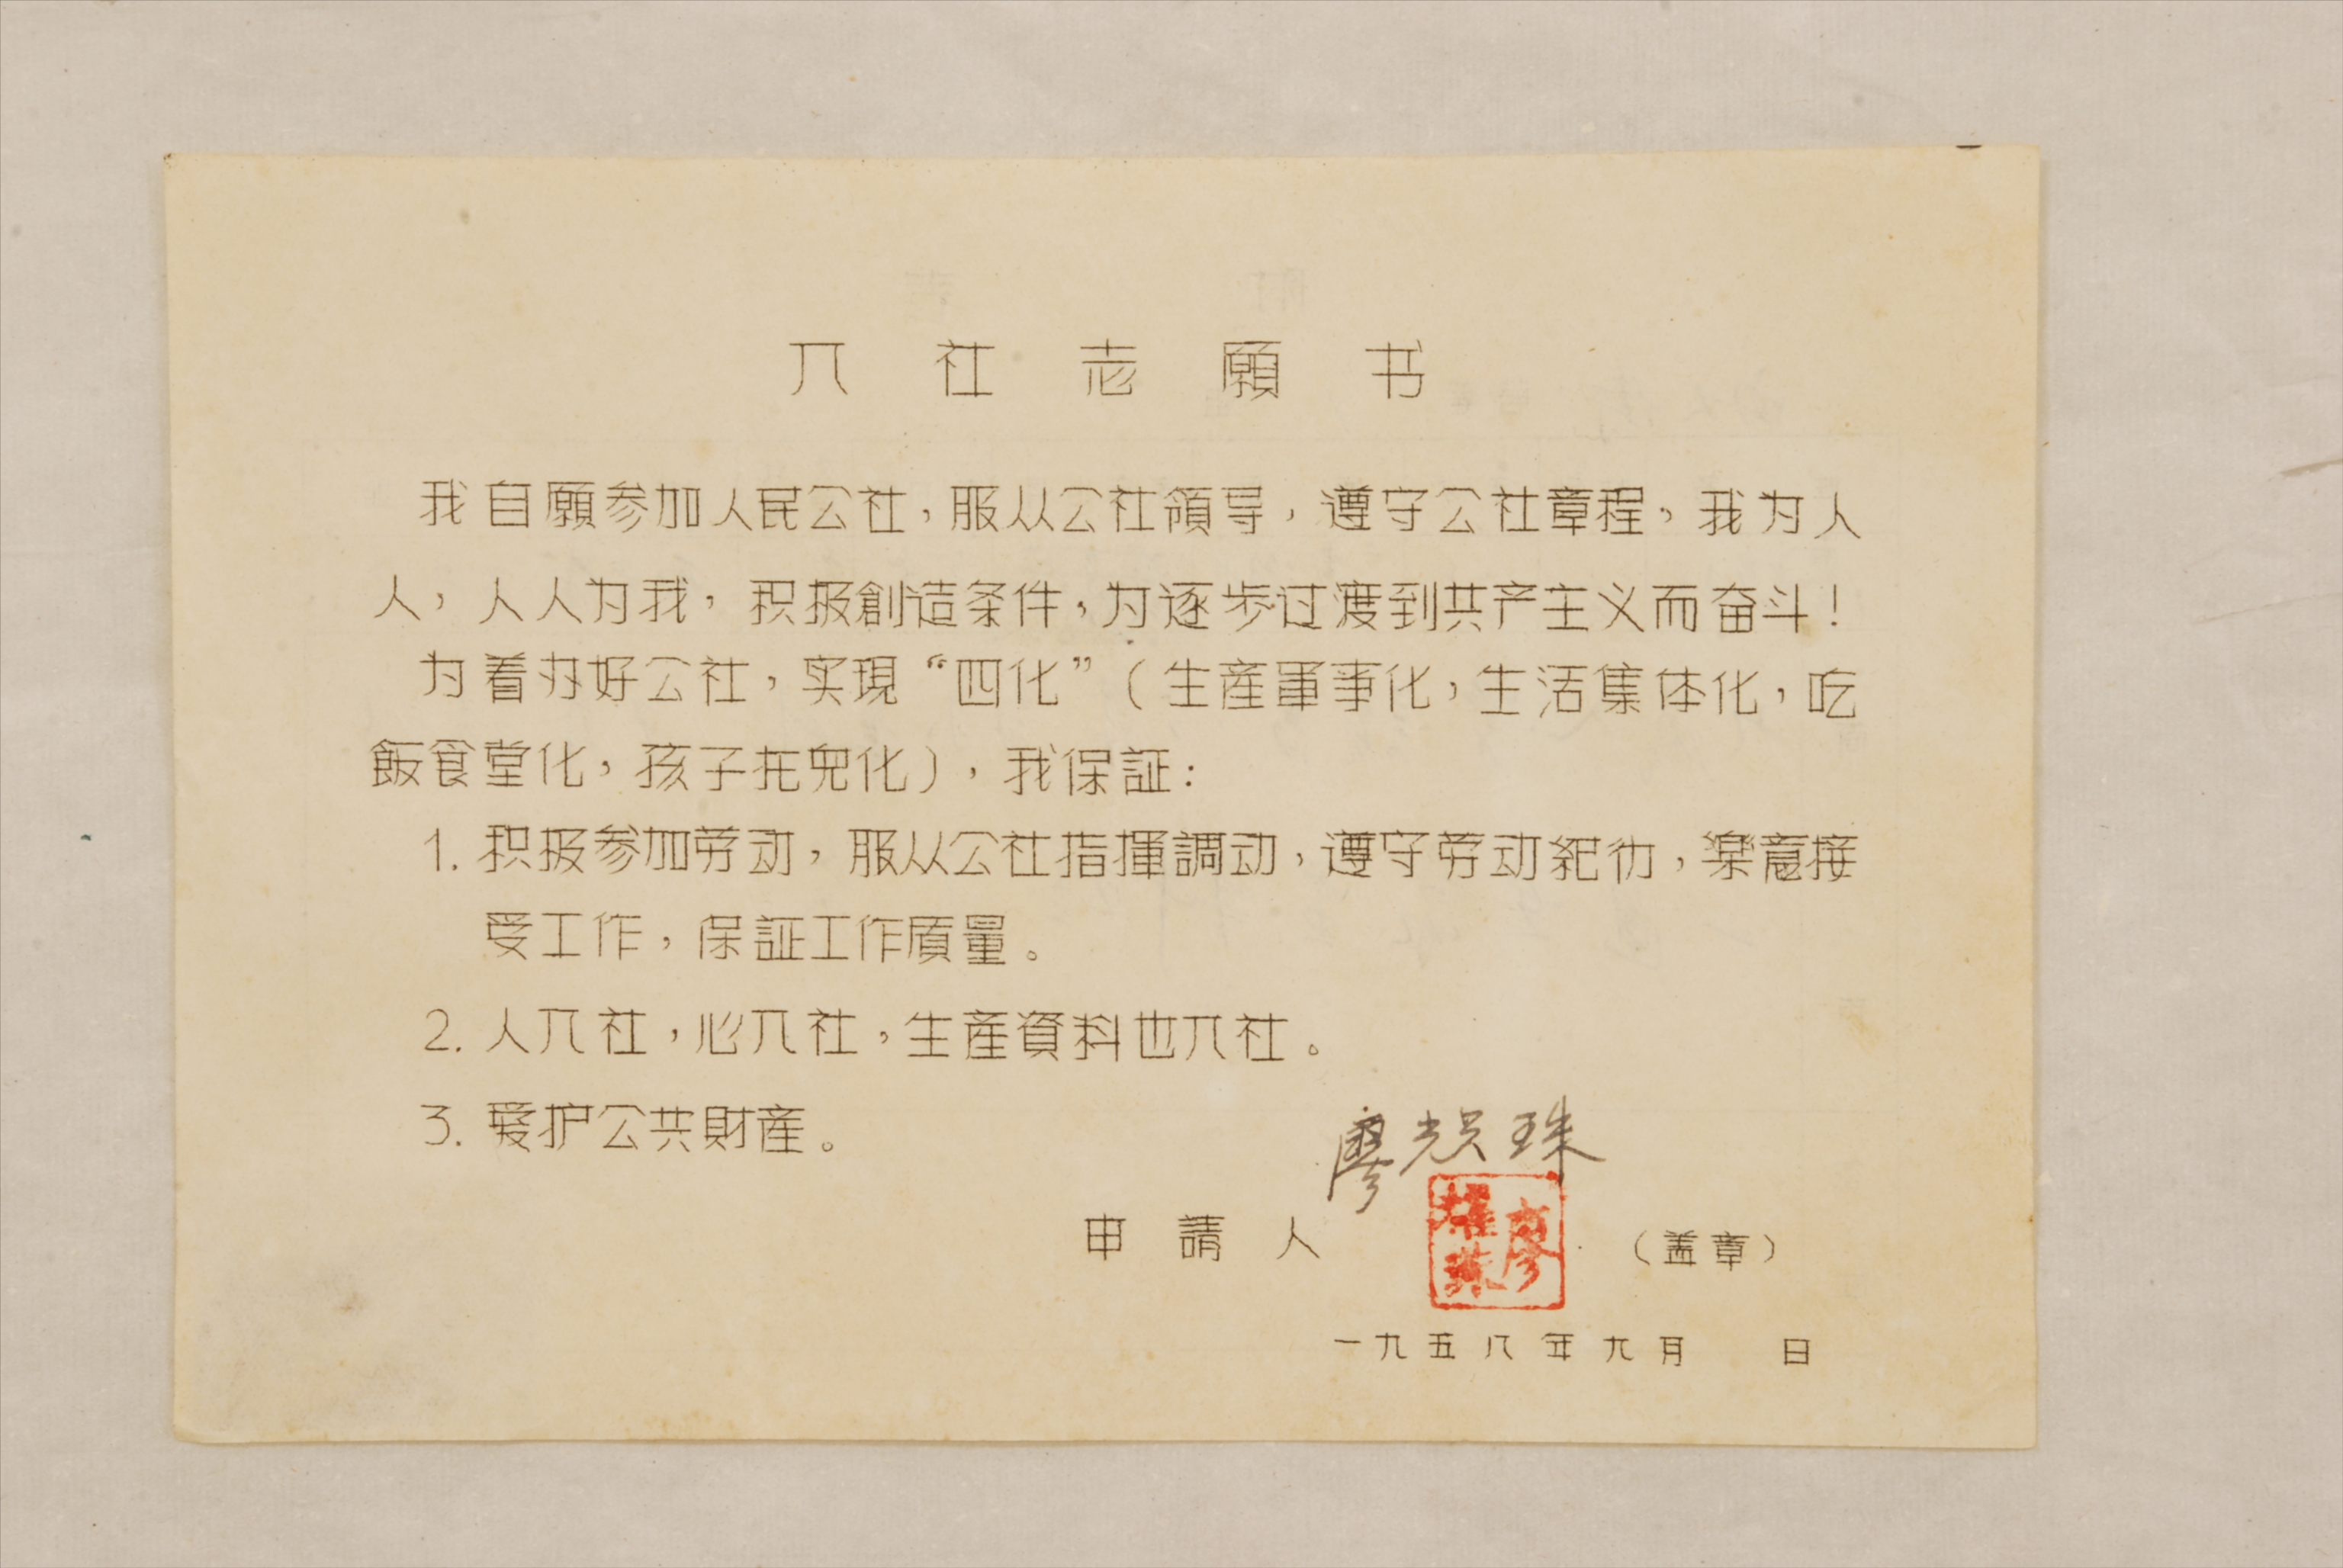 入社志願书
我自願参加人民公社，服从公社領导，遵守公社章程，我为人
人，人人为我，积极創造条件，为逐步过渡到共产主义而奋斗！
为着办好公社，实現“四化”（生産軍事化，生活集体化，吃
飯食堂化，孩子托兒化），我保証：
1. 积极参加劳动，服从公社指揮調动，遵守劳动紀律，楽意接
受工作，保証工作质量。
2. 人入社，心入社，生産資料也入社。
3. 爱护公共財産。
廖 珠
申請人
廖耀珠
（盖章）
一九五八年九月 日